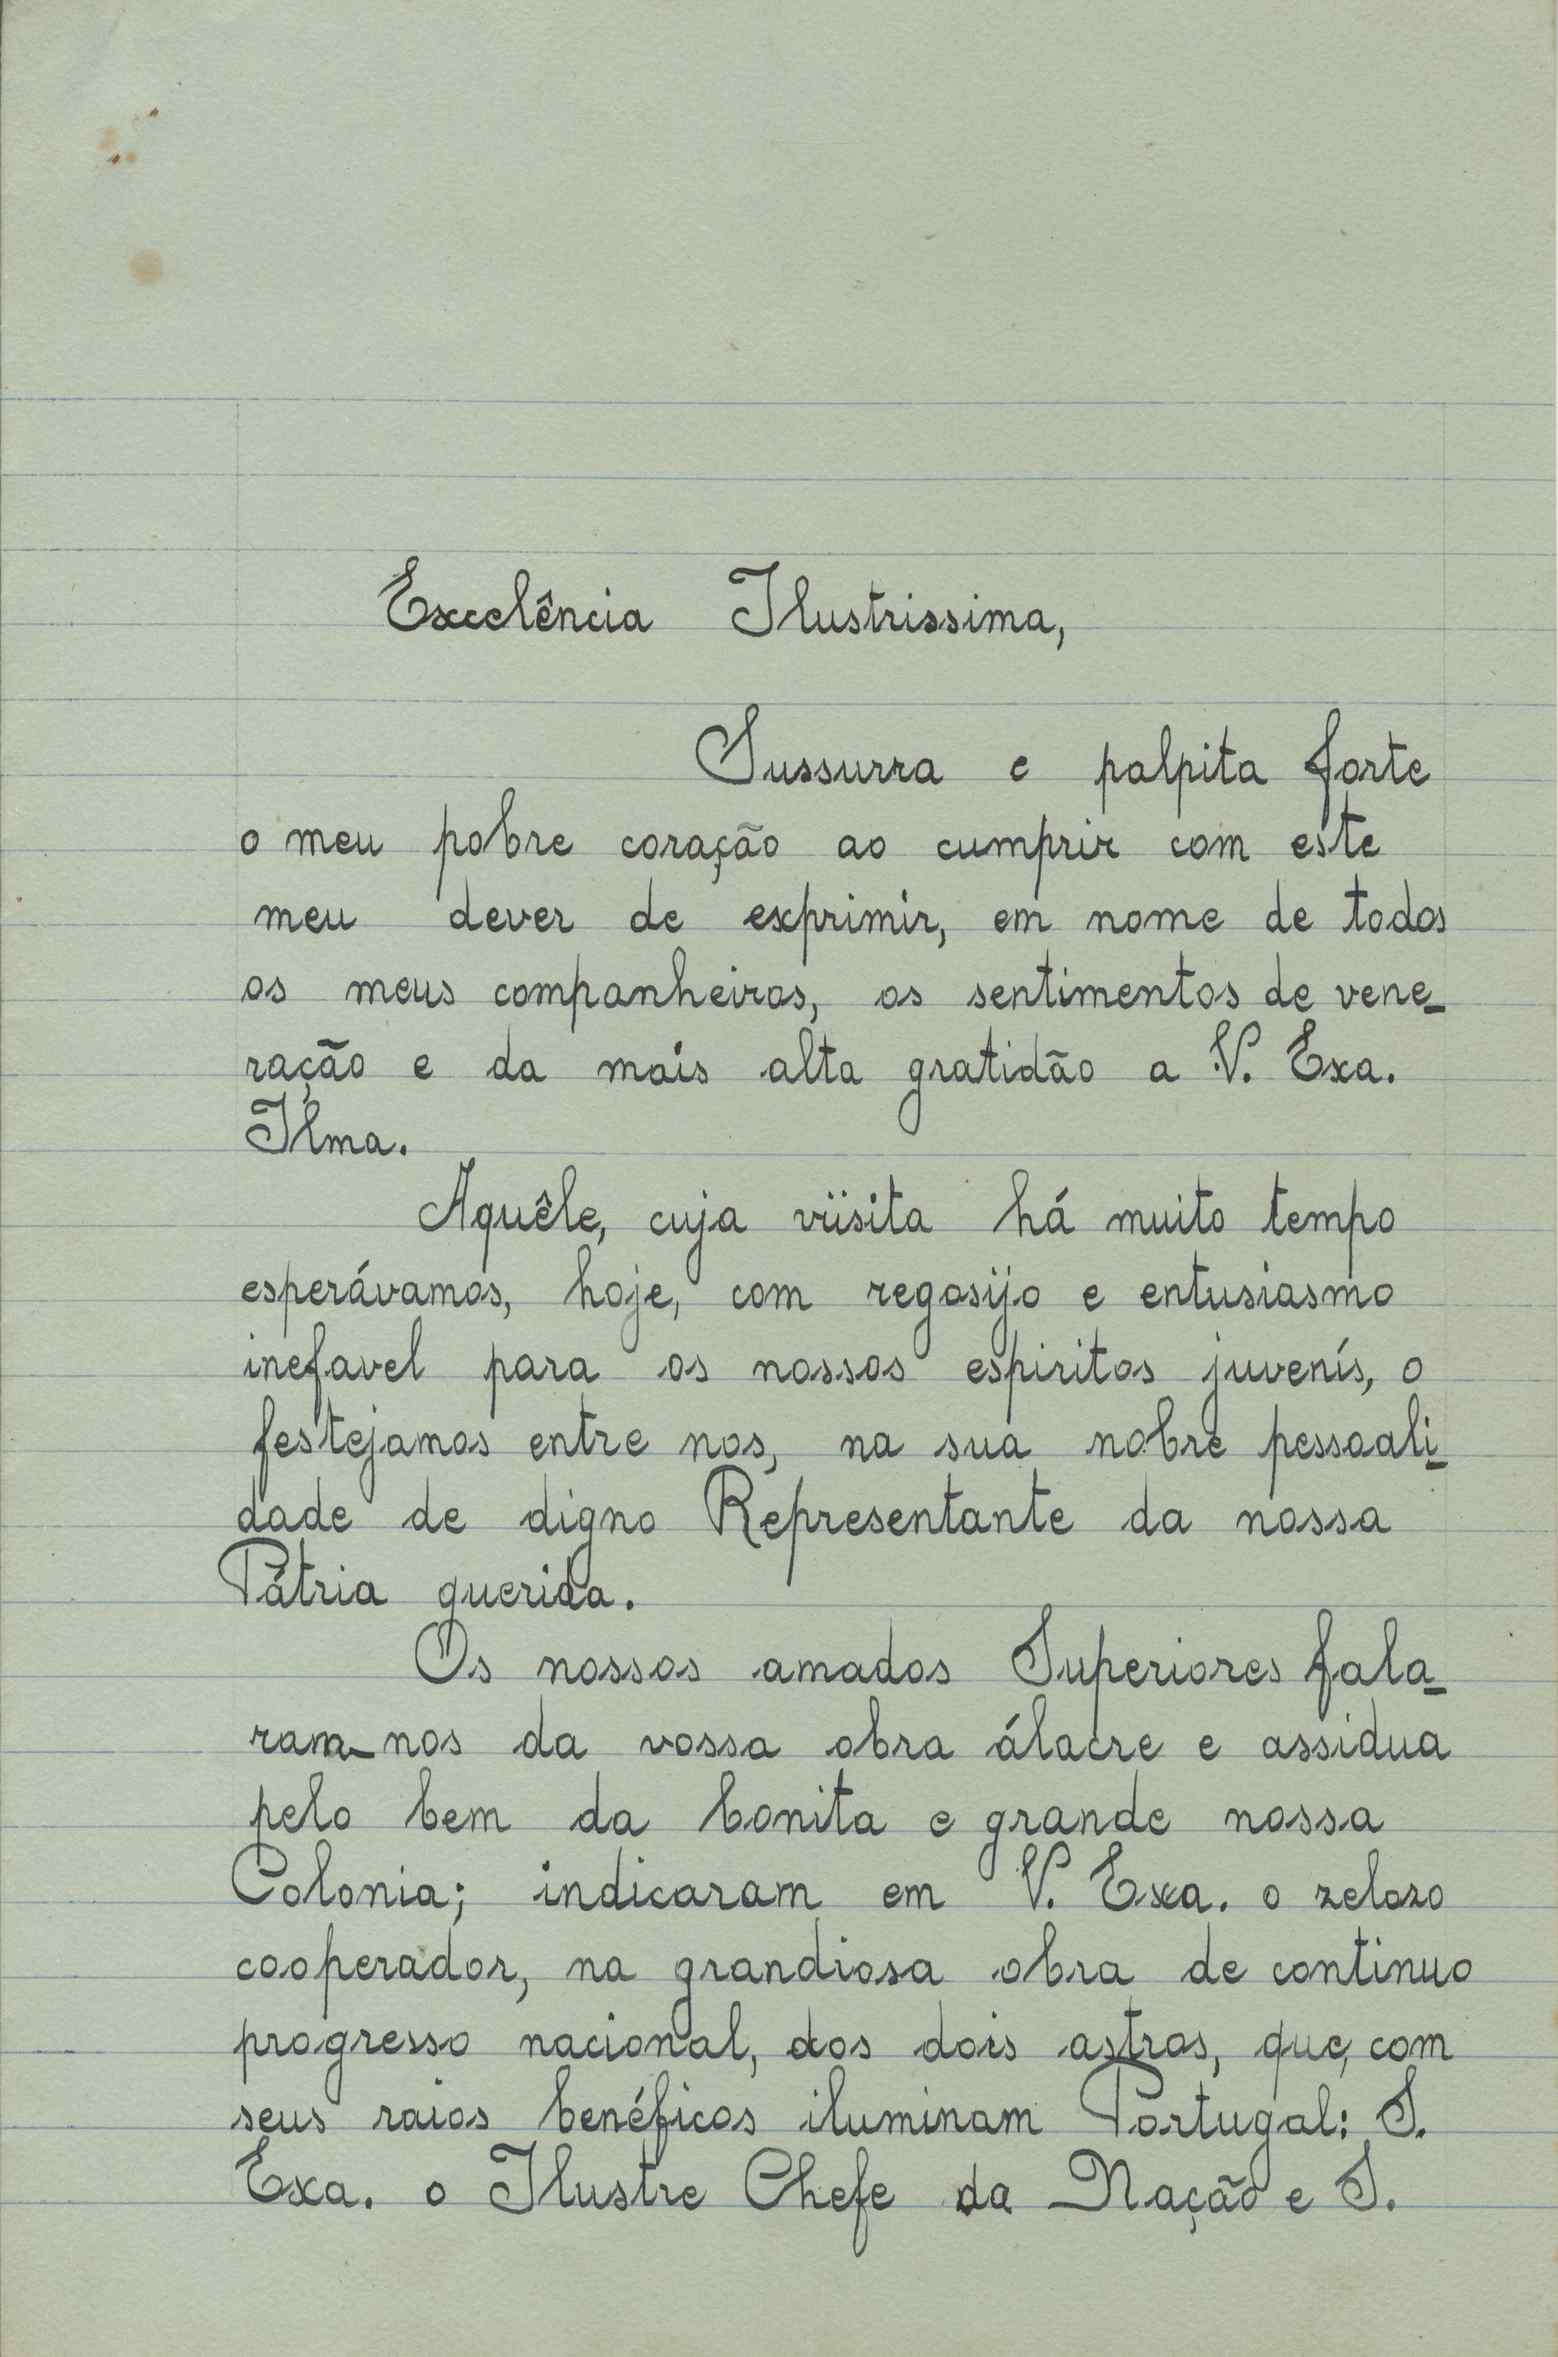 Excelência Ilustrissima,
Sussurra e palpita forte
o meu pobre coração ao cumprir com este
meu dever de exprimir, em nome de todos
os meus companheiros, os sentimentos de vene-
ração e da mais alta gratidão a V. Exa.
Ilma.
Aquêle, cuja viisita há muito tempo
esperávamos, hoje, com regosijo e entusiasmo
inefavel para os nossos espiritos juvenís, o
festejamos entre nos, na sua nobre pessoali-
dade de digno Representante da nossa
Pátria querida.
Os nossos amados Superiores fala-
ram-nos da vossa obra álacre e assidua
pelo bem da bonita e grande nossa
Colonia; indicaram em V. Exa. o zelozo
cooperador, na grandiosa obra de continuo
progresso nacional, dos dois astros, que, com
seus raios benéficos iluminam Portugal: S.
Exa. o Ilustre Chefe da Nação e S.